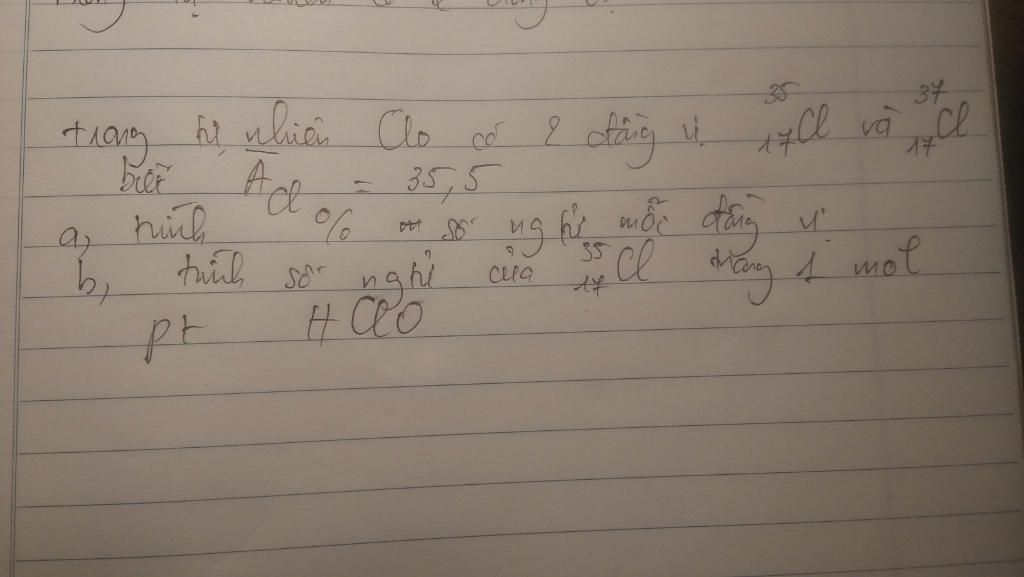 trong tự nhiên Clo có 2 đồng vị ³⁵₁₇Cl và ³⁷₁₇Cl
biết A̅Cl = 35,5
a, tính % số ngtử mỗi đồng vị
b, tính số ngtử của ³⁵₁₇Cl trong 1 mol
pt HClO